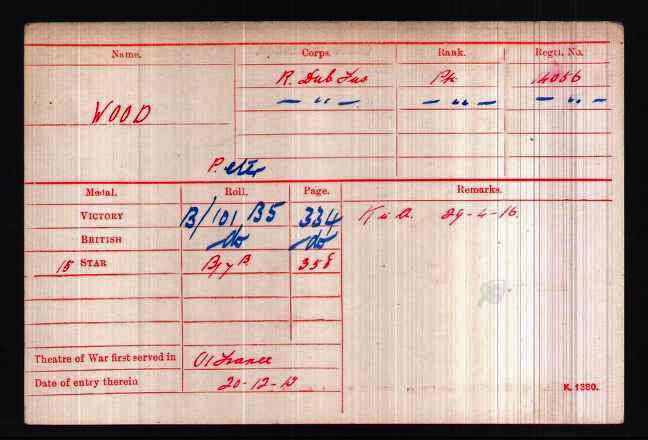 Name. Corps. Rank. Regtl. No.
R. Dub Fus Pte
WOOD — " — — " — — " —
Peter
Medal. Roll. Page. Remarks.
VICTORY B/101 B5 334 K in A. 29-4-16.
BRITISH do do
15 STAR 358
Theatre of War first served in (1) France
Date of entry therein 20-12-15
K. 1380.